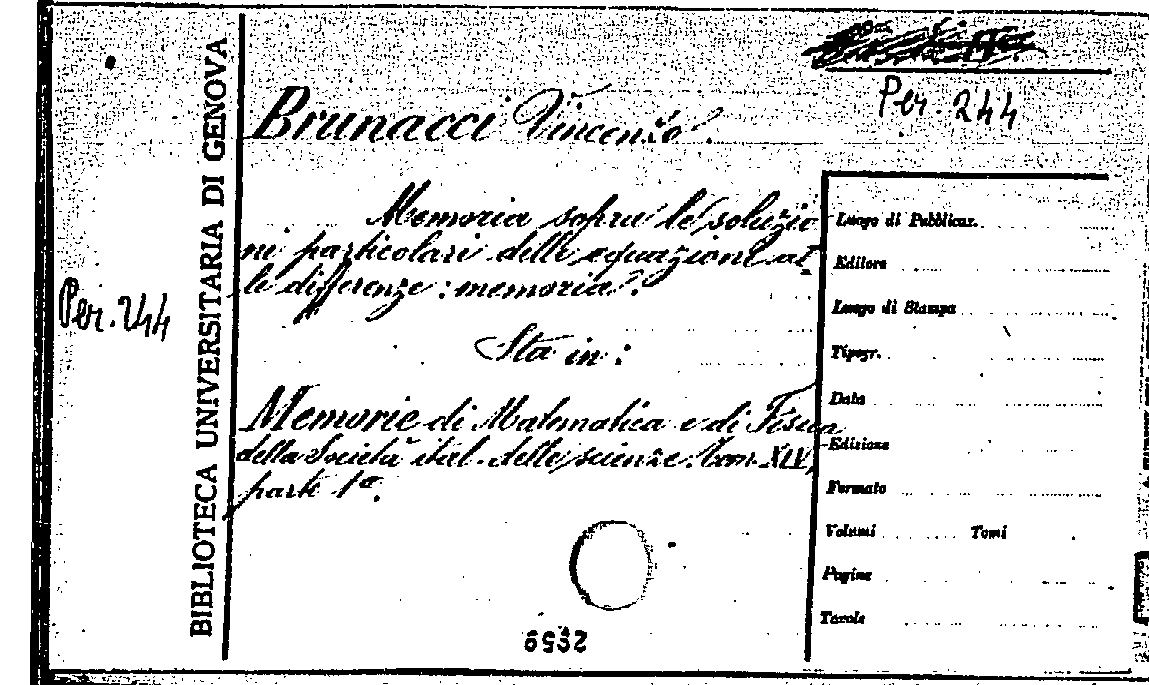 BIBLIOTECA UNIVERSITARIA DI GENOVA
Per. 244
Per. 244
Brunacci Vincenzo.
Memoria sopra le soluzio
ni particolari delle equazioni al
le differenze: memoria.
Sta in:
Memorie di Matematica e di Fisica
della Società ital. delle scienze. Tom. XIV,
parte 1ª.
Luogo di Pubblicaz.
Editore
Luogo di Stampa
Tipogr.
Data
Edizione
Formato
Volumi Tomi
Pagine
Tavole